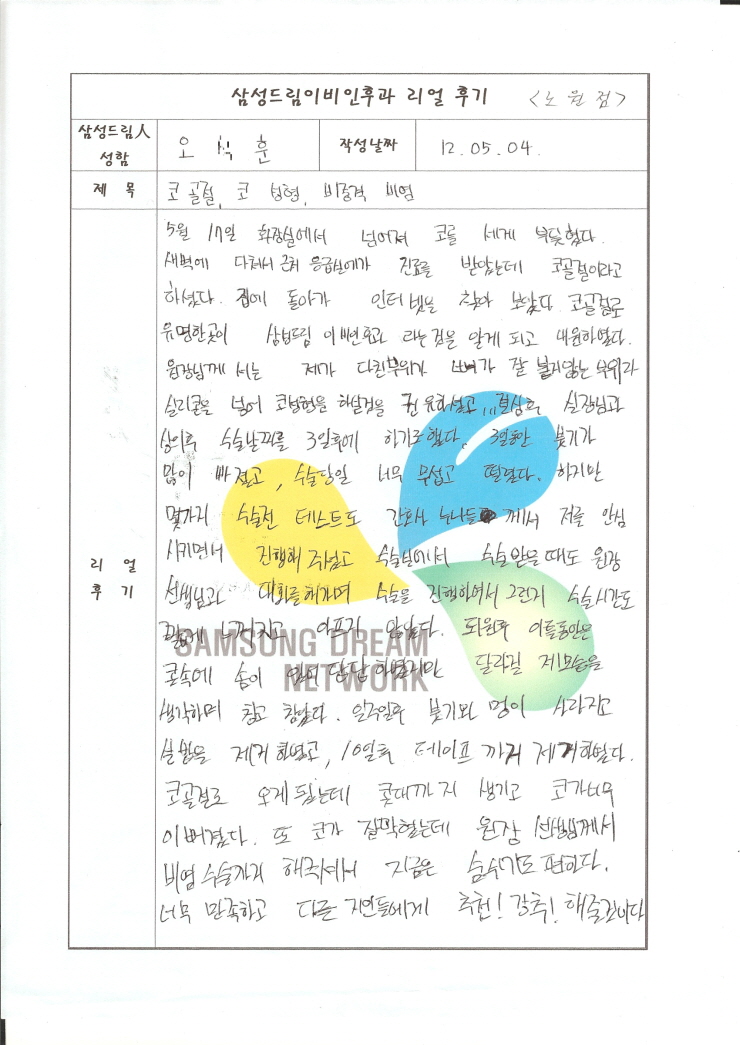 삼성드림이비인후과 리얼 후기 <노원점>
삼성드림人 성함 오석훈 작성날짜 12.05.04.
제 목 코골절, 코 성형, 비중격 비염
리 얼 후 기
5월 17일 화장실에서 넘어져 코를 세게 부딪혔다.
새벽에 다쳐서 근처 응급실에가 진료를 받았는데 코골절이라고
하셨다. 집에 돌아가 인터넷을 찾아 보았다. 코골절로
유명한곳이 삼성드림 이비인후과 라는것을 알게 되고 내원하였다.
원장님께서는 제가 다친부위가 뼈가 잘 붙지않는 부위라
실리콘을 넣어 코성형을 하실것을 권유하셨고, 실장님과
상의후 수술날짜를 3일후에 하기로했다. 3일동안 붓기가
많이 빠졌고, 수술당일 너무 무섭고 떨렸다. 하지만
몇가지 수술전 테스트도 간호사 누나들 께서 저를 안심
시키면서 진행해 주셨고 수술실에서 수술받을때도 원장
선생님과 대화를해가며 수술을 진행하여서 그런지 수술시간도
짧게 느껴지고 아프지 않았다. 퇴원후 이틀동안은
콧속에 솜이 있어 답답하였지만 달라질 제모습을
SAMSUNG DREAM
NETWORK
생각하며 참고 참았다. 일주일후 붓기와 멍이 사라지고
실밥을 제거하였고, 10일후 테이프 까지 제거하였다.
코골절로 오게됬는데 콧대까지 생기고 코가너무
이뻐졌다. 또 코가 꽉막혔는데 원장 선생님께서
비염수술까지 해주셔서 지금은 숨쉬기도 편하다.
너무 만족하고 다른 지인들에게 추천! 강추! 해줄것이다